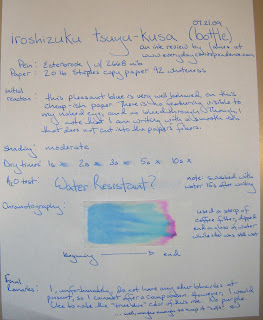 07.21.09
iroshizuku tsuyu-kusa (bottle)
an ink review by
www.everydaycorrespondence.com
Pen: Esterbrook J w/ 2668 nib
Paper: 20 lb Staples copy paper 92 whiteness
Initial reaction:
this pleasant blue is very well behaved on this
cheap-ish paper. There is no feathering visible to
my naked eye, and no bleedthrough, though I
note that I am writing with a smooth nib
that does not cut into the paper's fibers.
Shading: moderate
Dry times: 1s 2s 3s 5s 10s
H2O test
Water Resistant?
note: swabbed with
water 15s after writing
Chromatography:
used a strip of
coffee filter, dipped
end in glass of water
while ink was still wet
beginning → end
Final Remarks:
I, unfortunately, do not have any other blue inks at
present, so I cannot offer a comparison. However, I would
like to note the color of this ink. No purple